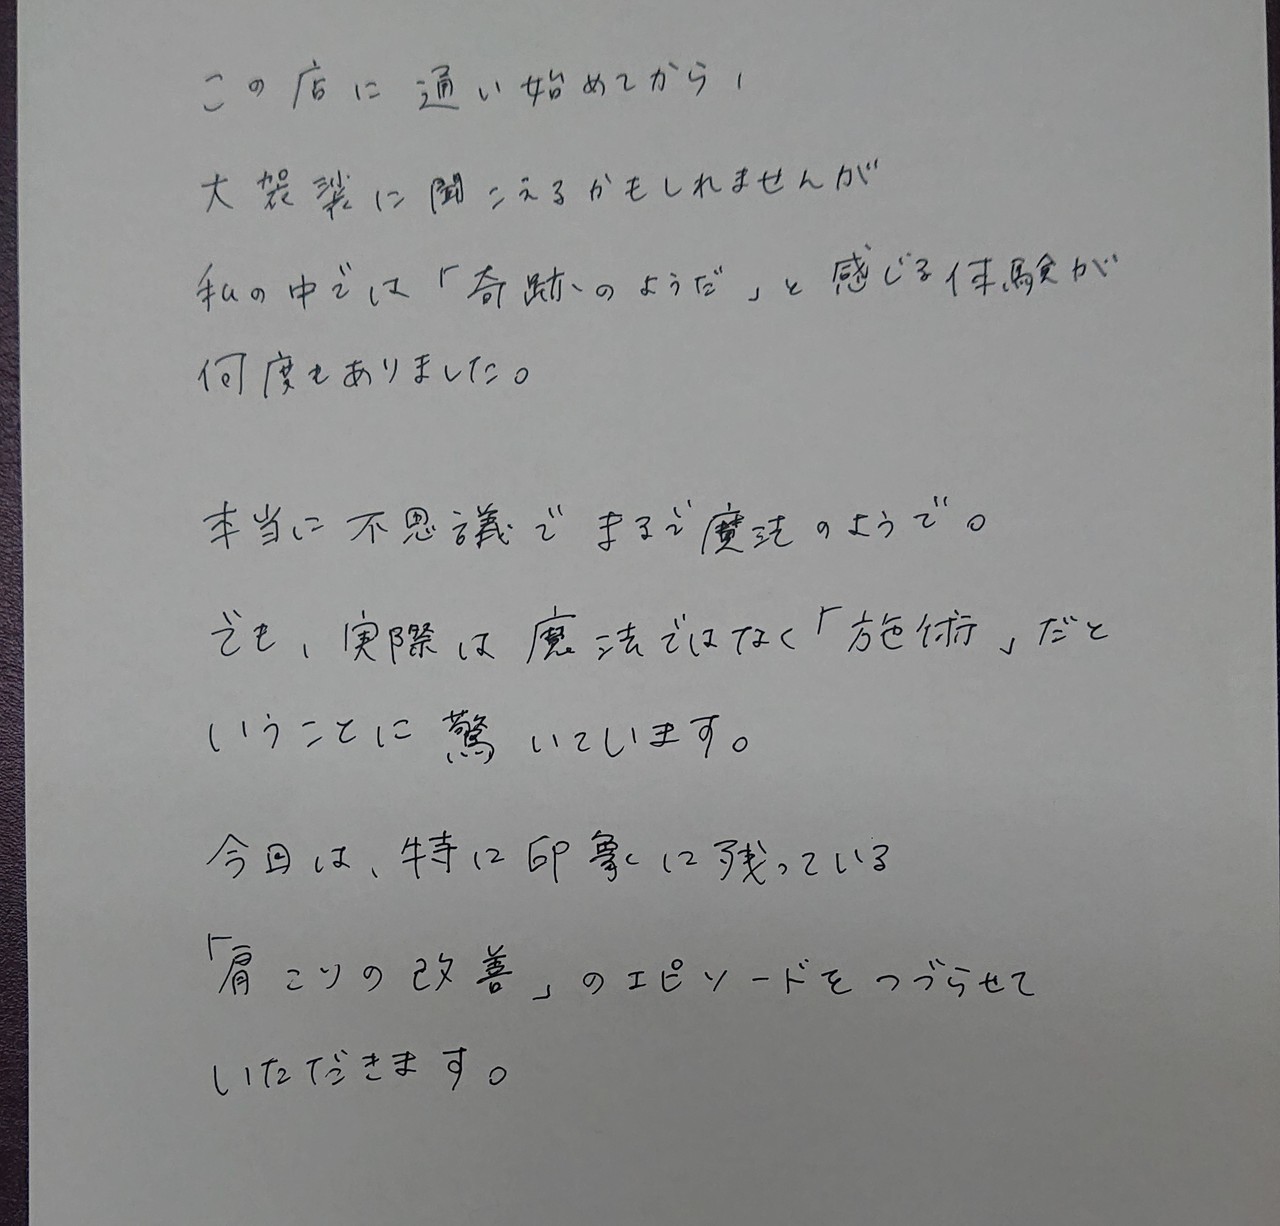 この店に通い始めてから、
大袈裟に聞こえるかもしれませんが
私の中では「奇跡のようだ」と感じる体験が
何度もありました。
本当に不思議でまるで魔法のようで。
でも、実際は魔法ではなく「施術」だと
いうことに驚いています。
今回は、特に印象に残っている
「肩こりの改善」のエピソードをつづらせて
いただきます。